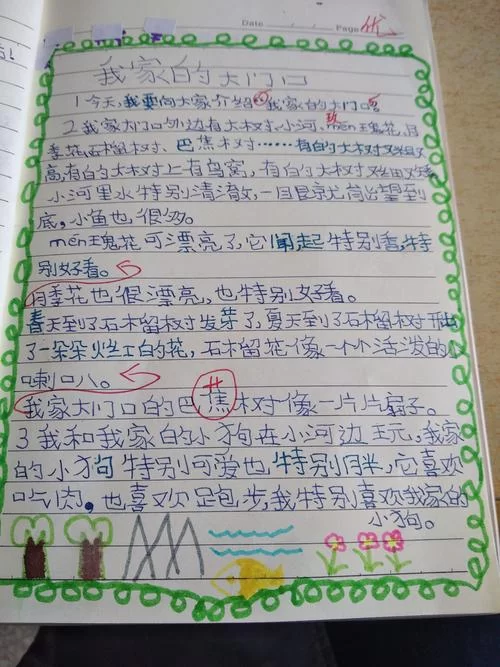 Date
Page 优
我家的大门口
1今天,我要向大家介绍我家的大门口
2我家大门口外边有大树、小河、玫men瑰花、月
季花、石榴树、巴蕉树……有的大树又粗又
高,有的大树上有鸟窝,有的大树又细又矮
小河里水特别清澈,一眼就能望到
底,小鱼也很多。
men瑰花可漂亮了,它闻起特别香,特
别好看。
月季花也很漂亮,也特别好看。
春天到了石榴树发芽了,夏天到了石榴树开出
了一朵朵火红的花,石榴花像一个个活泼的小
喇叭。
我家大门口的巴蕉树像一片片扇子。
3我和我家的小狗在小河边玩,我家
的小狗特别可爱也特别胖,它喜欢
吃肉,也喜欢跑步,我特别喜欢我家的
小狗。